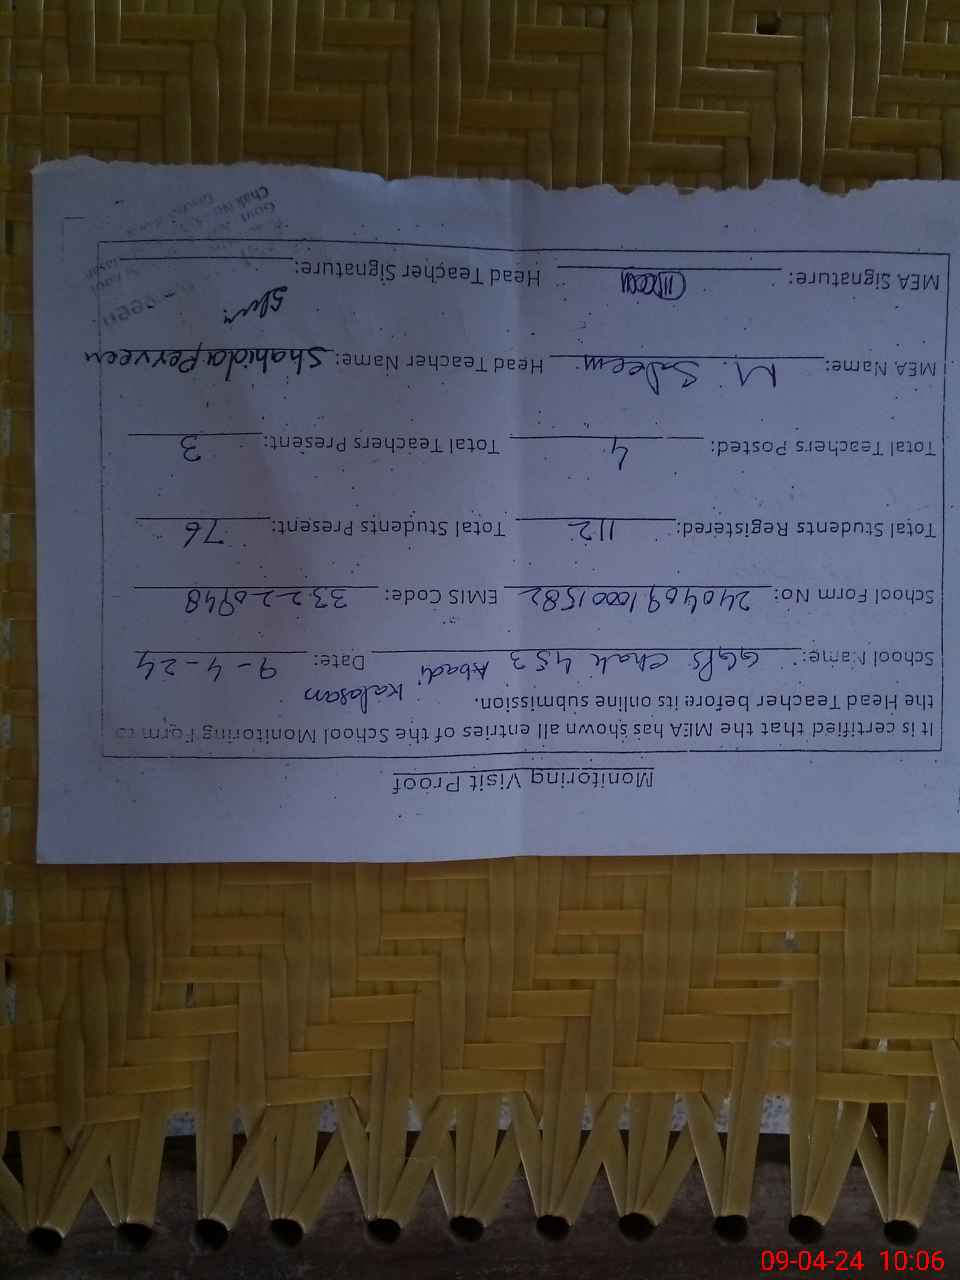 Monitoring Visit Proof
It is certified that the MEA has shown all entries of the School Monitoring Form to
the Head Teacher before its online submission.
School Name: GGPS Chak 453 Abadi Kalasan Date: 9-4-24
School Form No: 24040910001582 EMIS Code: 33220948
Total Students Registered: 112 Total Students Present: 76
Total Teachers Posted: 4 Total Teachers Present: 3
MEA Name: M. Saleem Head Teacher Name: Shahida Perveen
MEA Signature: Head Teacher Signature:
Chak No
09-04-24 10:06